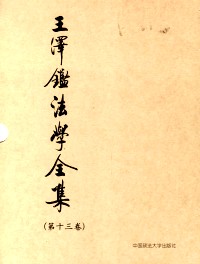 王澤鑑法學全集
(第十三卷)
中国政法大学出版社